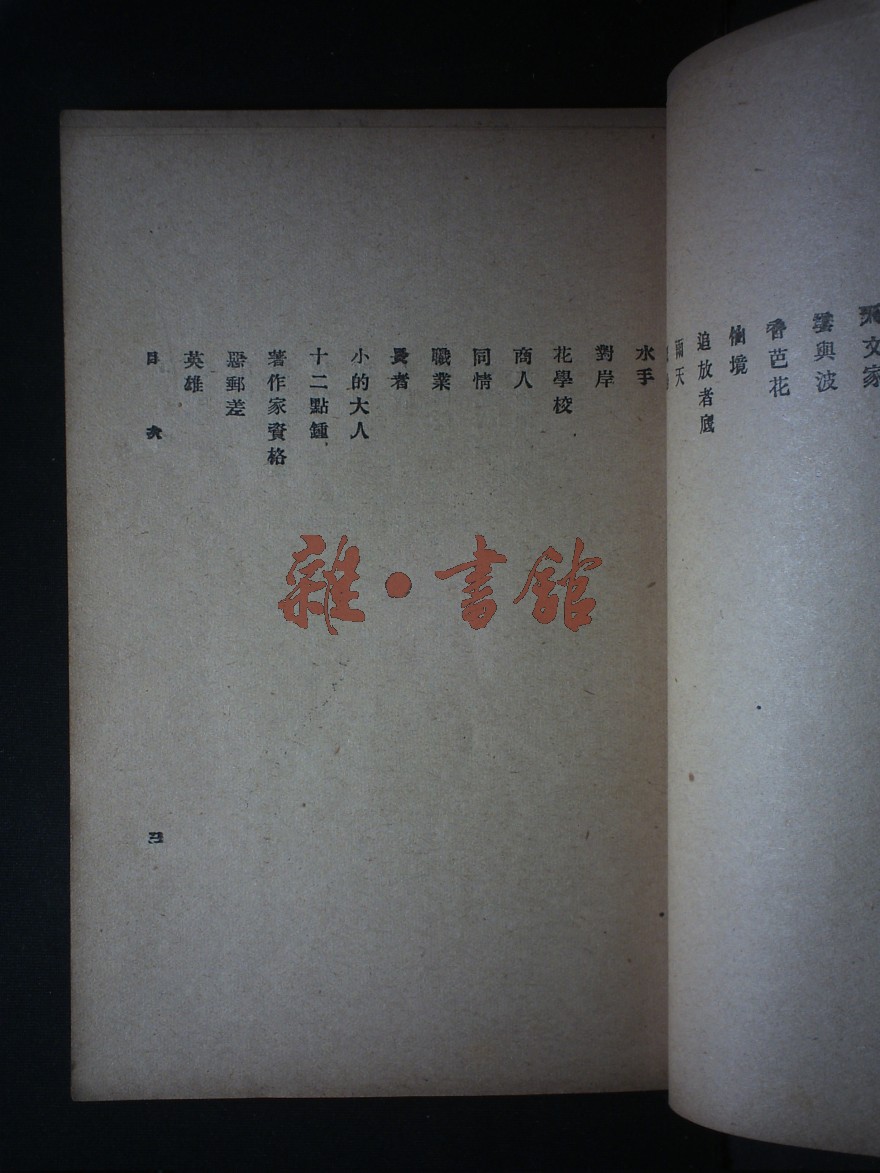 天文家
雲與波
香芭花
仙境
追放者底
雨天
水手
對岸
花學校
商人
同情
職業
長者
小的大人
十二點鍾
著作家資格
惡郵差
英雄
目次
三
雜·書館